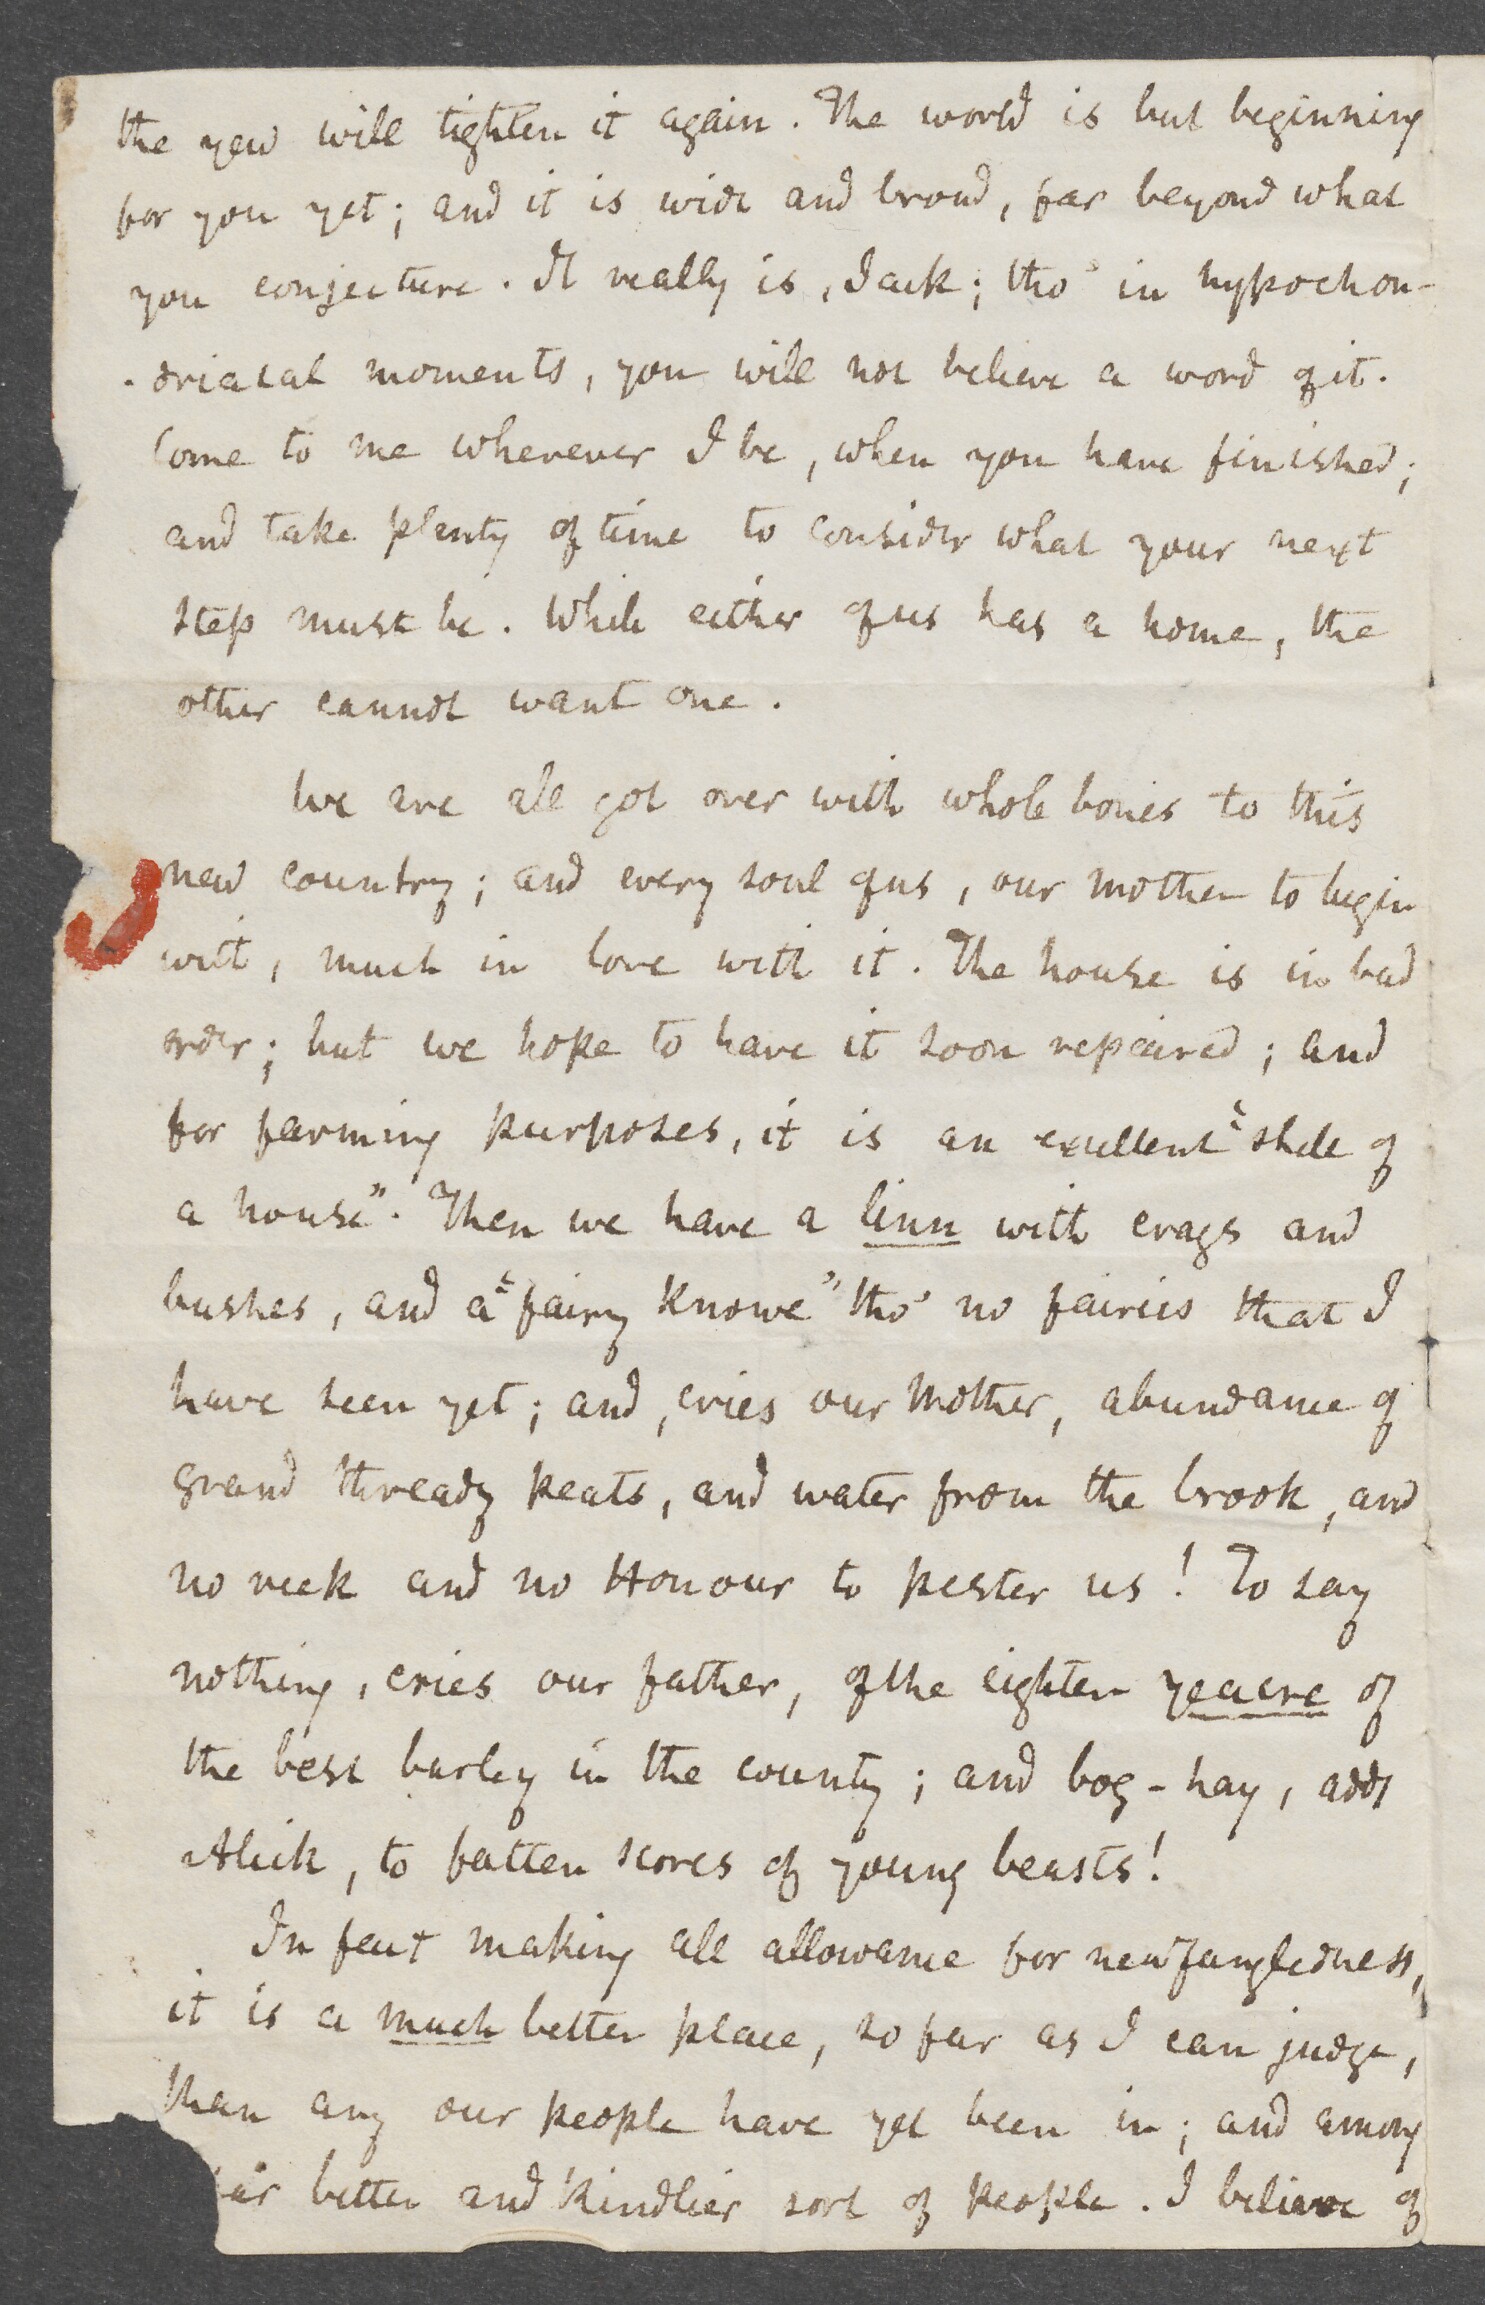 the yew will tighten it again. The world is but beginning
for you yet; and it is wide and broad, far beyond what
you conjecture. It really is, Jack; tho' in hypochon-
-driacal moments, you will not believe a word of it.
Come to me wherever I be, when you have finished;
and take plenty of time to consider what your next
step must be. While either of us has a home, the
other cannot want one.
We are all got over with whole bones to this
new country; and every soul of us, our mother to begin
with, much in love with it. The house is in bad
order; but we hope to have it soon repaired; and
for farming purposes, it is an excellent "shell of
a house". Then we have a linn with crags and
bushes, and a "fairy knowe" tho' no fairies that I
have seen yet; and, cries our Mother, abundance of
grand thready peats, and water from the brook, and
no reek and no Honour to pester us! To say
nothing, cries our father, of the eighteen yeacre of
the best barley in the county; and bog-hay, adds
Alick, to fatten scores of young beasts!
In fact making all allowance for newfangledness,
it is a much better place, so far as I can judge,
than any our people have yet been in; and among
far better and kindlier sort of people. I believe of